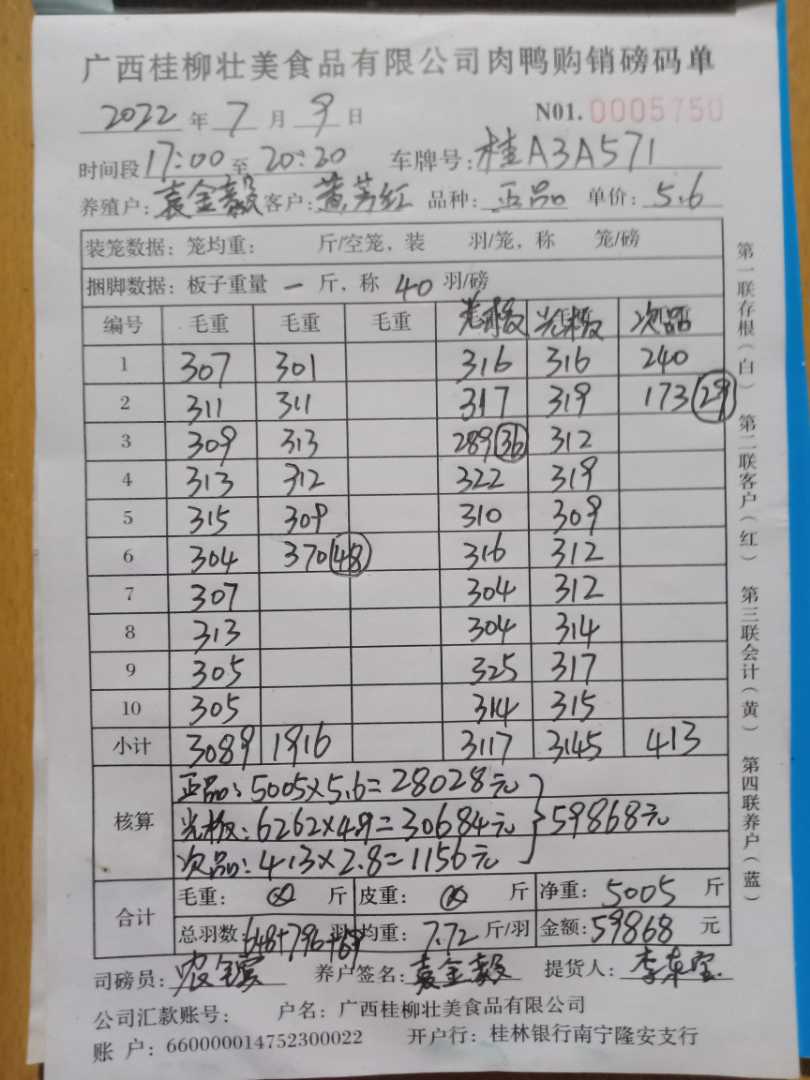 广西桂柳壮美食品有限公司肉鸭购销磅码单
2022 年 7 月 9 日 N01. 0005750
时间段 17:00 至 20:20 车牌号: 桂A3A571
养殖户: 袁金毅 客户: 黄芳红 品种: 正品 单价: 5.6
装笼数据: 笼均重: 斤/空笼, 装 羽/笼, 称 笼/磅
捆脚数据: 板子重量 一 斤, 称 40 羽/磅
编号 毛重 毛重 毛重 光板 光板 次品
1 307 301 316 316 240
2 311 311 317 319 173 29
3 309 313 289 36 312
4 313 312 322 319
5 315 309 310 309
6 304 370 48 316 312
7 307 304 312
8 313 304 314
9 305 325 317
10 305 314 315
小计 3089 1916 3117 3145 413
核算
正品: 5005×5.6=28028元
光板: 6262×4.9=30684元 } 59868元
次品: 413×2.8=1156元
合计
毛重: 斤 皮重: 斤 净重: 5005 斤
总羽数: 648+796+69 羽 均重: 7.72 斤/羽 金额: 59868 元
司磅员: 养户签名: 袁金毅 提货人:
公司汇款账号: 户名: 广西桂柳壮美食品有限公司
账 户: 660000014752300022 开户行: 桂林银行南宁隆安支行
第一联存根(白) 第二联客户(红) 第三联会计(黄) 第四联养户(蓝)